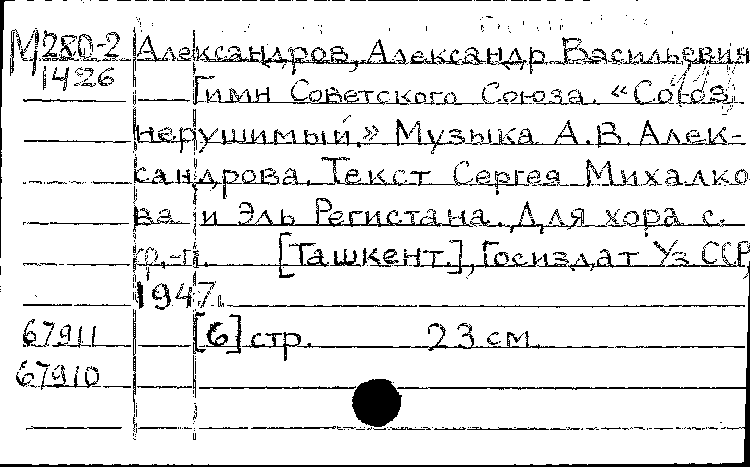 М280-2 Александров, Александр Васильевич
1426 Гимн Советского Союза. «Союз
нерушимый.» Музыка А.В. Алек-
сандрова. Текст Сергея Михалко
ва и Эль Регистана. Для хора с.
ф.-п. [Ташкент.], Госиздат Уз ССР,
1947г.
67911 [6] стр. 23 см.
67910